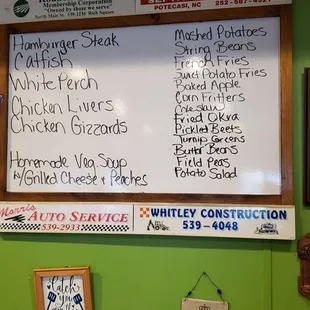 Membership Corporation
"Owned by those we serve"
North Main St. 539-2236 Rich Square
POTECASI, NC 252-587-4521
Hamburger Steak
Catfish
White Perch
Chicken Livers
Chicken Gizzards
Homemade Veg Soup
w/Grilled Cheese + Peaches
Mashed Potatoes
String Beans
French Fries
Sweet Potato Fries
Baked Apple
Corn Fritters
Cole Slaw
Fried Okra
Pickled Beets
Turnip Greens
Butter Beans
Field Peas
Potato Salad
Morris
AUTO SERVICE
539-2933
WHITLEY CONSTRUCTION
539-4048